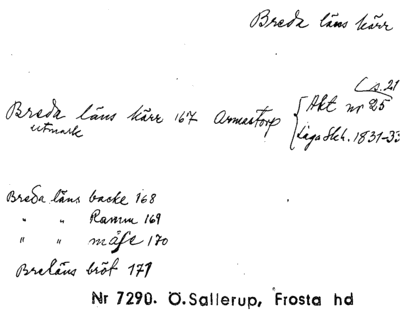 Breda läns kärr
(s. 21
Breda läns kärr 167 Armastorp { Akt nr 25
utmark Laga Skh. 1831-33
Breda läns backe 168
" " Ramm 169
" " måse 170
Breläns bröt 171
Nr 7290. Ö.Sallerup, Frosta hd